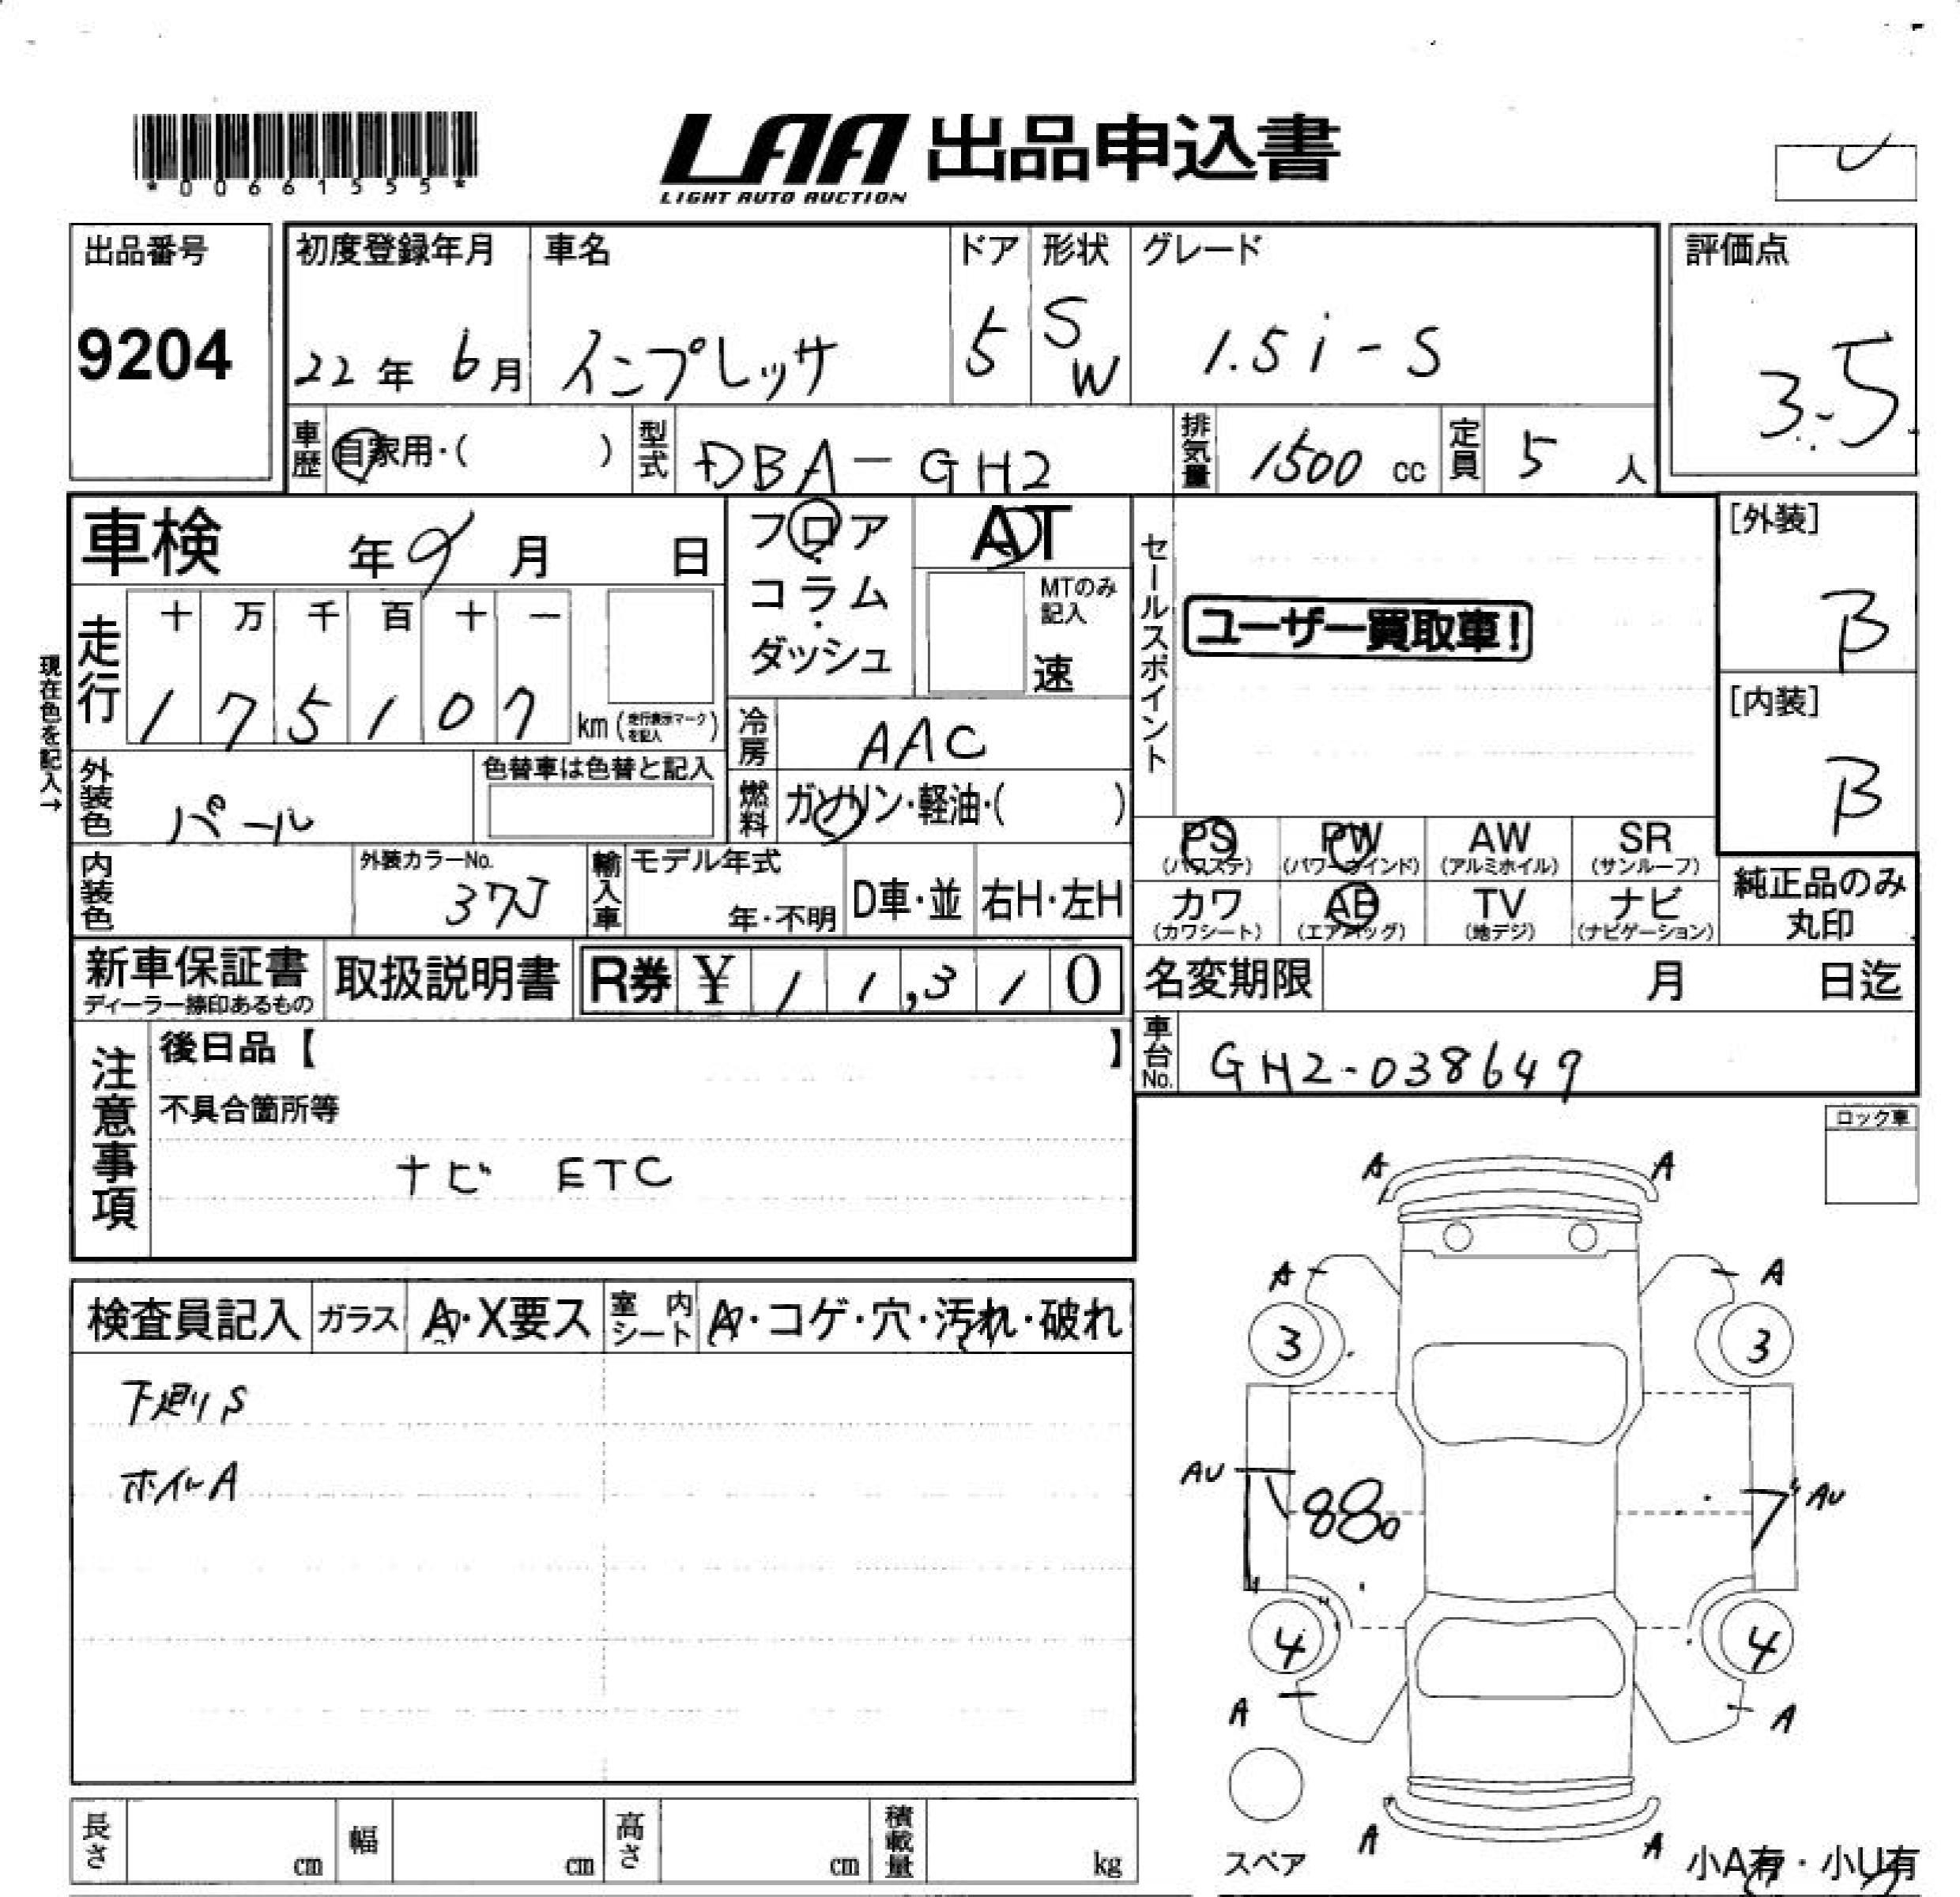 *00661555*
LAA 出品申込書
LIGHT AUTO AUCTION
出品番号
9204
初度登録年月
22年 6月
車名
インプレッサ
ドア
5
形状
SW
グレード
1.5i-S
評価点
3.5
車歴
自家用・( )
型式
DBA-GH2
排気量
1500 cc
定員
5 人
車検 年 月 日
フロア・コラム・ダッシュ
AT
MTのみ記入
速
セールスポイント
ユーザー買取車!
[外装]
B
[内装]
B
現在色を記入→
走行
十 万 千 百 十 一
1 7 5 1 0 7 km (走行表示マークを記入)
冷房
AAC
燃料
ガソリン・軽油・( )
外装色
パール
色替車は色替と記入
PS (パワステ)
PW (パワーウインド)
AW (アルミホイル)
SR (サンルーフ)
カワ (カワシート)
AB (エアバッグ)
TV (地デジ)
ナビ (ナビゲーション)
純正品のみ丸印
内装色
外装カラーNo.
37J
輸入車
モデル年式
年・不明
D車・並
右H・左H
新車保証書
ディーラー捺印あるもの
取扱説明書
R券 ¥ 1 1,3 1 0
名変期限 月 日迄
車台No.
GH2-038649
注意事項
後日品【 】
不具合箇所等
ナビ ETC
ロック車
検査員記入
ガラス
A・X要ス
室内シート
A・コゲ・穴・汚れ・破れ
下廻りS
ホイルA
A A
A A
3 3
AU AU
880
4 4
A A
A A
スペア
小A有・小U有
長さ cm
幅 cm
高さ cm
積載量 kg